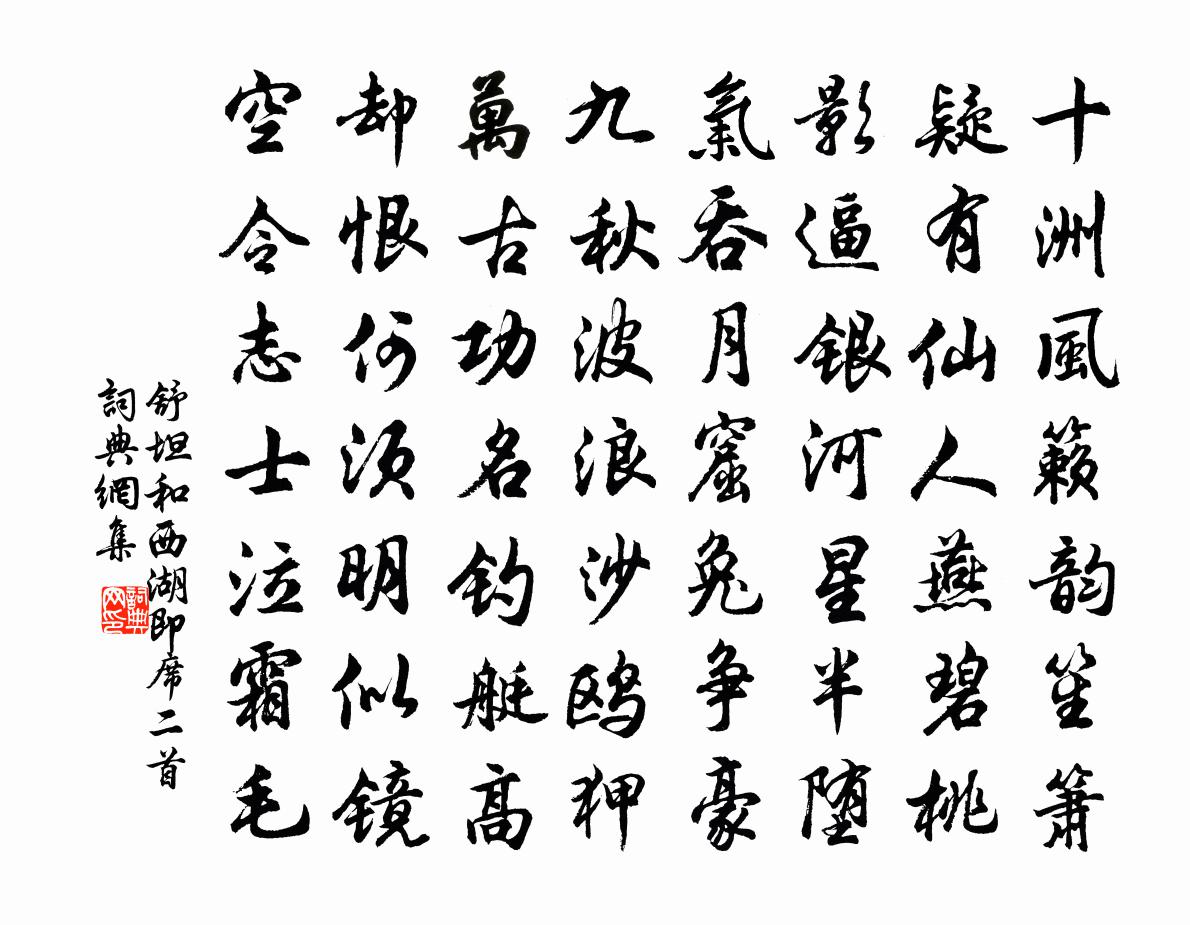 十洲風籟韵笙簫
疑有仙人燕碧桃
影逼銀河星半堕
氣吞月窟兔争豪
九秋波浪沙鸥狎
萬古功名钓艇高
却恨何須明似镜
空令志士泣霜毛
舒坦和西湖即席二首
詞典網集
詞典网印